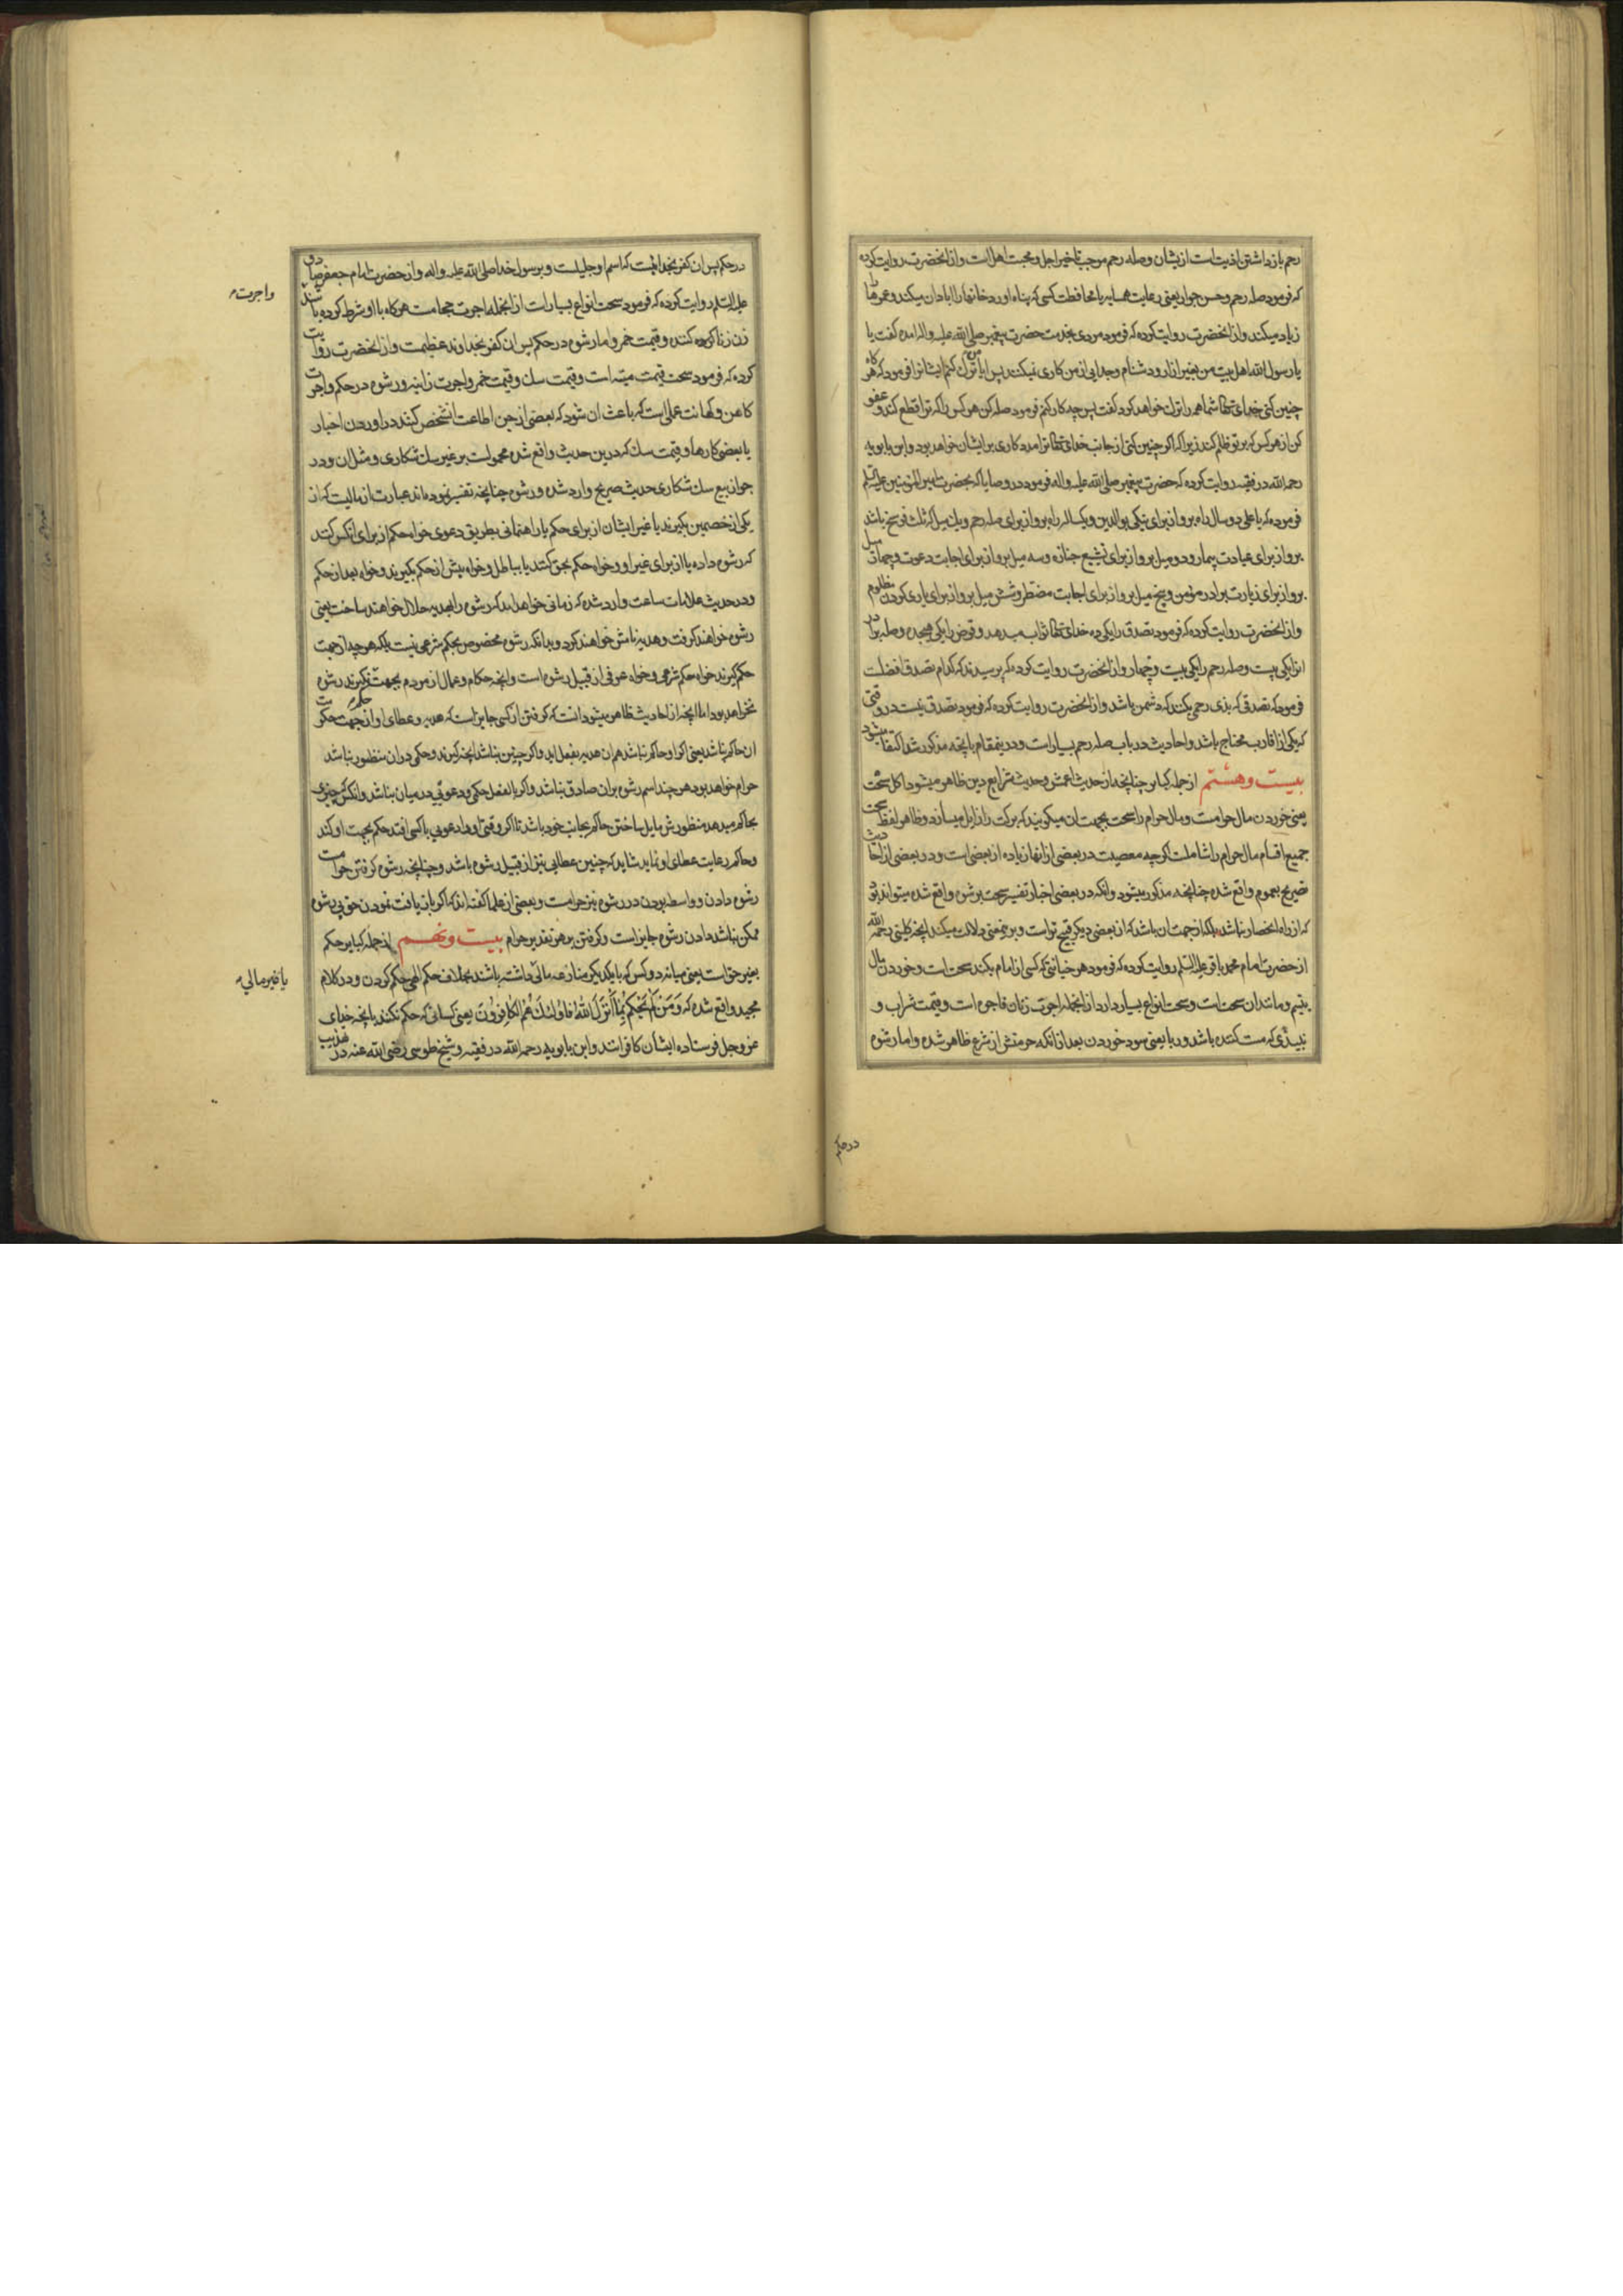 رحم باز داشتن اذیت است ازیشان وصله رحم موجب تاخیر اجل و محبت اهل است وازانحضرت روایت کرده
که فرمود صله رحم وحسن جوار یعنی رعایت همسایه یا محافظت کسی که پناه اورد خانها را ابادان میکند وعمرها
زیاد میکند وازانحضرت روایت کرده که فرمود مردی بخدمت حضرت پیغمبر صلی الله علیه واله امده گفت یا
یا رسول الله اهل بیت من بغیر ازار ودشنام وجدایی از من کاری نمیکنند پس ایا من ترک کنم ایشانرا فرمود که هرکاه
چنین کنی خدای تعالی شما همه را ترک خواهد کرد گفت پس چه کار کنم فرمود صله کن هرکس را که ترا قطع کند وعفو
کن از هرکس که بر تو ظلم کند زیرا که اگر چنین کنی از جانب خدای تعالی ترا مددکاری بر ایشان خواهد بود وابن بابویه
رحمه الله در فقیه روایت کرده که حضرت پیغمبر صلی الله علیه واله فرمود در وصایا که بحضرت امیر المؤمنین علیه السلم
فرموده که یا علی دو سال راه برو از برای نیکی بوالدین ویکساله راه برو از برای صله رحم ویک میل که ثلث فرسخ باشد
برو از برای عیادت بیمار ودو میل برو از برای تشییع جنازه وسه میل برو از برای اجابت دعوت وچهار میل
برو از برای زیارت برادر مؤمن وپنج میل برو از برای اجابت مضطر وشش میل برو از برای یاری کردن مظلوم
وازانحضرت روایت کرده که فرمود تصدق را یکی ده خدای تعالی ثواب میدهد وقرض را یکی هیجده وصله برادر
انرا یکی بیست وصله رحم را یکی بیست وچهار وازانحضرت روایت کرده که پرسیدند که کدام تصدق افضلست
فرمود که تصدقی که بذی رحمی بکند که دشمن باشد وازانحضرت روایت کرده که فرمود تصدق نیست در وقتی
که یکی از اقارب محتاج باشد واحادیث در باب صله رحم بسیار است ودرینمقام بانچه مذکور شد اکتفا میشود
بیست و هشتم از جمله کبایر چنانچه از حدیث اعمش وحدیث شرایع دین ظاهر میشود اکل سحت
یعنی خوردن مال حرامست ومال حرام را سحت بجهت ان میکویند که برکت را زایل میسازد وظاهر لفظ سحت
جمیع اقسام مال حرام را شاملست اگرچه معصیت در بعضی ازانها زیاده از بعضی است ودر بعضی از احادیث
صریح بعموم واقع شده چنانچه مذکور میشود وانکه در بعضی اخبار تفسیر سحت برشوه واقع شده میتواند بود
که از راه انحصار نباشد بلکه از جهت ان باشد که از بعضی دیکر قبیح تر است وبر یمعنی دلالت میکند انچه کلینی رحمه الله
از حضرت امام محمد باقر علیه السلم روایت کرده که فرمود هر خیانتی که کسی از امام بکند سحت است وخوردن مال
یتیم ومانند ان سحت است وسحت انواع بسیار دارد ازانجمله اجرت زنان فاجره است وقیمت شراب و
نبیذی که مست کننده باشد وربا یعنی سود خوردن بعد ازانکه حرمتش از شرع ظاهر شده واما رشوه
در حکم
در حکم پس ان کفر بخدائیست که اسم او جلیلست وبرسول خدا صلی الله علیه واله واز حضرت امام جعفر صادق
علیه السلم روایت کرده که فرمود سحت انواع بسیار است ازانجمله اجرت حجامت هرکاه با او شرط کرده باشند
واجرت
زن زناکرده کننده وقیمت خمر واما رشوه در حکم پس ان کفر بخداوند عظیمست وازانحضرت روایت
کرده که فرمود سحت قیمت میته است وقیمت سک وقیمت خمر واجرت زانیه ورشوه در حکم واجرت
کاهن وکهانت عملی است که باعث ان شود که بعضی از جن اطاعت انشخص کنند در اوردن اخبار
یا بعضی کارها وقیمت سک که درین حدیث واقع شده محمولست بر غیر سک شکاری ومثل ان ودر
جواز بیع سک شکاری حدیث صریح وارد شده ورشوه چنانچه تفسیر نموده اند عبارت از مالیست که از
یکی از خصمین بکیرند یا غیر ایشان از برای حکم یا راهنمائی بطریق دعوی خواه حکم از برای انکس کنند
که رشوه داده یا از برای غیر او وخواه حکم بحق کنند یا بباطل وخواه پیش از حکم بکیرند وخواه بعد از حکم
ودر حدیث علامات ساعت وارد شده که زمانی خواهد امد که رشوه را بهدیه حلال خواهند ساخت یعنی
رشوه خواهند کرفت وهدیه نامش خواهند کرد وبدانکه رشوه مخصوص بحکم شرعی نیست بلکه هرچه از جهت
حکم کیرند خواه حکم شرعی وخواه عرفی از قبیل رشوه است وانچه حکام وعمال از مردم بجهت کیرند رشوه
نخواهد بود اما انچه از احادیث ظاهر میشود انست که کرفتن از کسی جایز است که هدیه وعطای او از جهت حکومت
ان حاکم نباشد یعنی اکر او حاکم نباشد هم ان هدیه بفعل اید واکر چنین نباشد انچه کیرند وحکمی در ان منظور نباشد
حرام خواهد بود هرچند اسم رشوه بران صادق نباشد واکر بالفعل حکمی ودعوئی در میان نباشد وانکس که چیزی
بحاکم میدهد منظورش مایل ساختن حاکم بجانب خود باشد تا اکر وقتی او را دعویی با کسی افتد حکم بجهت او کند
وحاکم رعایت عطای او نماید شاید که چنین عطایی نیز از قبیل رشوه باشد وچنانچه رشوه کرفتن حرامست
رشوه دادن وواسطه بودن در رشوه نیز حرامست وبعضی از علما کفته اند که اکر بازیافت نمودن حق بی رشوه
ممکن نباشد دادن رشوه جایز است وکرفتن بر هر تقدیر حرام بیست و نهم از جمله کبایر حکم
بغیر حق است یعنی میانه دو کس که با یکدیکر منازعه مالی داشته باشند بخلاف حکم الهی حکم کردن ودر کلام
یا غیر مالی
مجید واقع شده که وَمَنْ لَمْ یَحْکُمْ بِمَا أَنْزَلَ اللهُ فَاُولئِكَ هُمُ الکَافِرُونَ یعنی کسانی که حکم نکنند بانچه خدای
عز وجل فرستاده ایشان کافرانند وابن بابویه رحمه الله در فقیه وشیخ طوسی رضی الله عنه در تهذیب